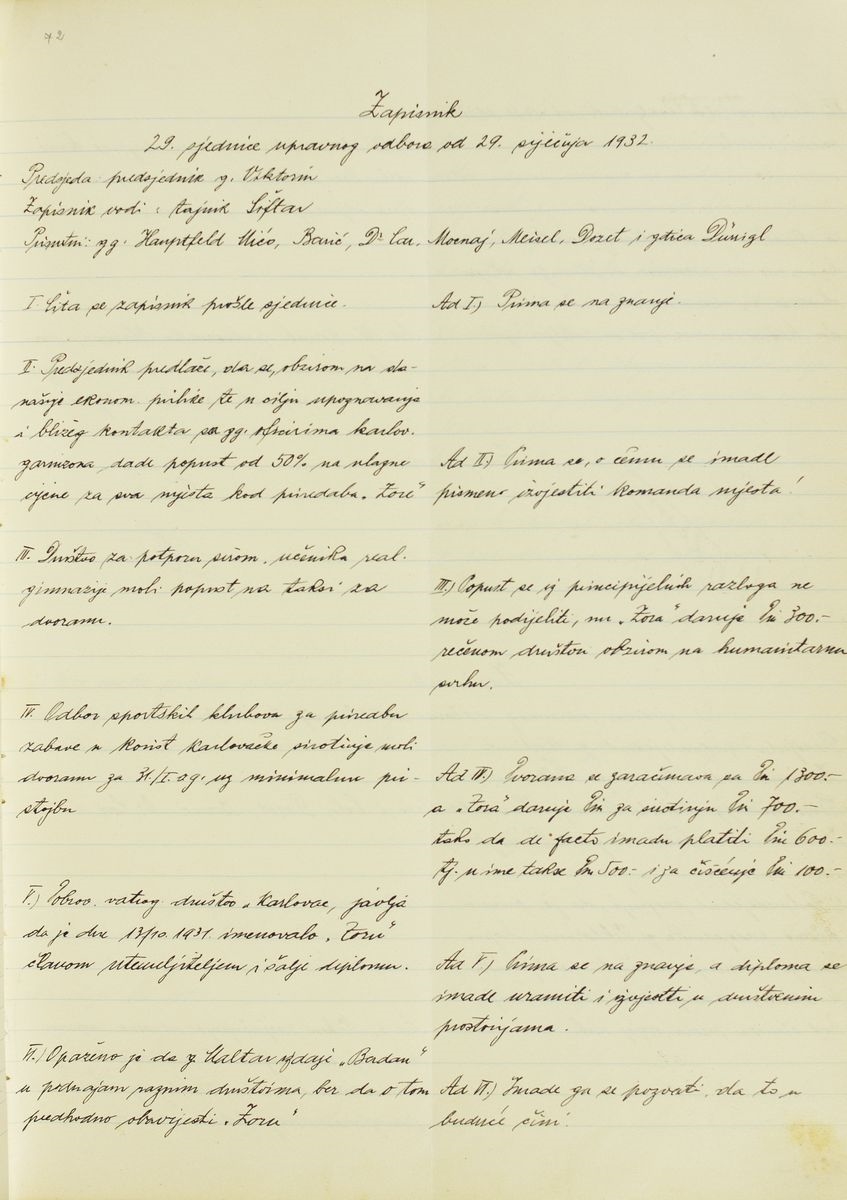 72
Zapisnik
29. sjednice upravnog odbora od 29. siječnja 1932.
Predsjeda: predsjednik g. Viktorin
Zapisnik vodi: tajnik Šiftar
Prisutni: gg. Hauptfeld Mićo, Barić, Dr Car, Mocnaj, Meisel, Dozet, i gdica Dünigl
I. Čita se zapisnik prošle sjednice.
Ad I.) Prima se na znanje.
II. Predsjednik predlaže, da se, obzirom na da-
našnje ekonom. prilike te u cilju upoznavanja
i bližeg kontakta sa gg. oficirima karlov.
garnizona dade popust od 50% na ulazne
cijene za sva mjesta kod priredaba „Zore"
Ad II.) Prima se, o čemu se imade
pismeno izvjestiti komanda mjesta!
III. Društvo za potporu sirom. učenika real.
gimnazije moli popust na taksi za
dvoranu.
III.) Popust se iz principijelnih razloga ne
može podijeliti, nu „Zora" daruje Din 300.-
rečenom društvu obzirom na humanitarnu
svrhu.
IV. Odbor sportskih klubova za priredbu
zabave u korist karlovačke sirotinje moli
dvoranu za 31./I. o.g. uz minimalnu pri-
stojbu
Ad IV.) Dvorana se zaračunava sa Din 1300.-
a „Zora" daruje Din za sirotinju Din 700.-
tako da de facto imadu platiti Din 600.-
tj. u ime takse Din 500.- i za čišćenje Din 100.-
V.) Dobrov. vatrog. društvo „Karlovac, javlja
da je dne 13/10. 1931. imenovalo „Zoru"
članom utemeljiteljem i šalje diplomu.
Ad V.) Prima se na znanje, a diploma se
imade uramiti i izvjesiti u društvenim
prostorijama.
VI.) Opaženo je da g. Maltar izdaje „Bardan"
u podnajam raznim društvima, bez da o tom
predhodno obavijesti „Zoru"
Ad VI.) Imade ga se pozvati, da to u
buduće čini.